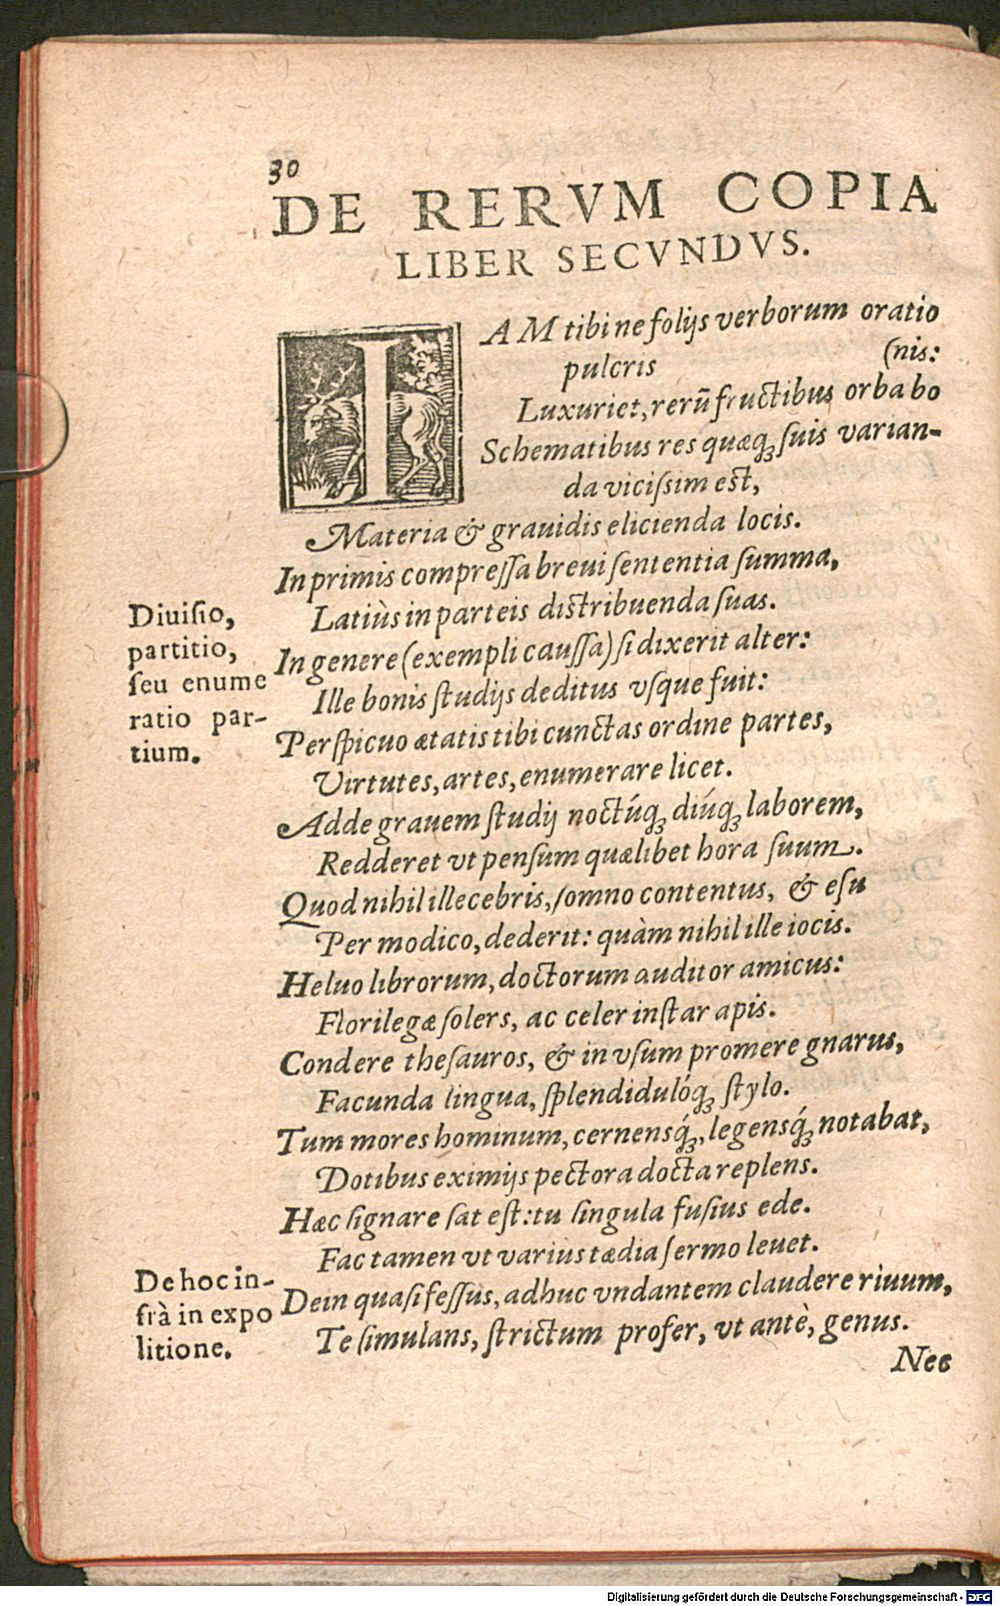 30
DE RERVM COPIA
LIBER SECVNDVS.
IAM tibi ne folijs verborum oratio
pulcris (nis:
Luxuriet, rerũ fructibus orba bo
Schematibus res quæq; suis varian-
da vicissim est,
Materia & grauidis elicienda locis.
In primis compressa breui sententia summa,
Latiùs in parteis distribuenda suas.
Diuisio,
partitio,
seu enume
ratio par-
tium.
In genere (exempli caussa) si dixerit alter:
Ille bonis studijs deditus vsque fuit:
Perspicuo ætatis tibi cunctas ordine partes,
Virtutes, artes, enumerare licet.
Adde grauem studij noctúq; diúq; laborem,
Redderet vt pensum quælibet hora suum.
Quod nihil illecebris, somno contentus, & esu
Per modico, dederit: quàm nihil ille iocis.
Heluo librorum, doctorum auditor amicus:
Florilegæ solers, ac celer instar apis.
Condere thesauros, & in vsum promere gnarus,
Facunda lingua, splendidulóq; stylo.
Tum mores hominum, cernensq́;, legensq́; notabat,
Dotibus eximijs pectora docta replens.
Hæc signare sat est: tu singula fusius ede.
Fac tamen vt varius tædia sermo leuet.
De hoc in-
frà in expo
litione.
Dein quasi fessus, adhuc vndantem claudere riuum,
Te simulans, strictum profer, vt antè, genus.
Nec
Digitalisierung gefördert durch die Deutsche Forschungsgemeinschaft - DFG